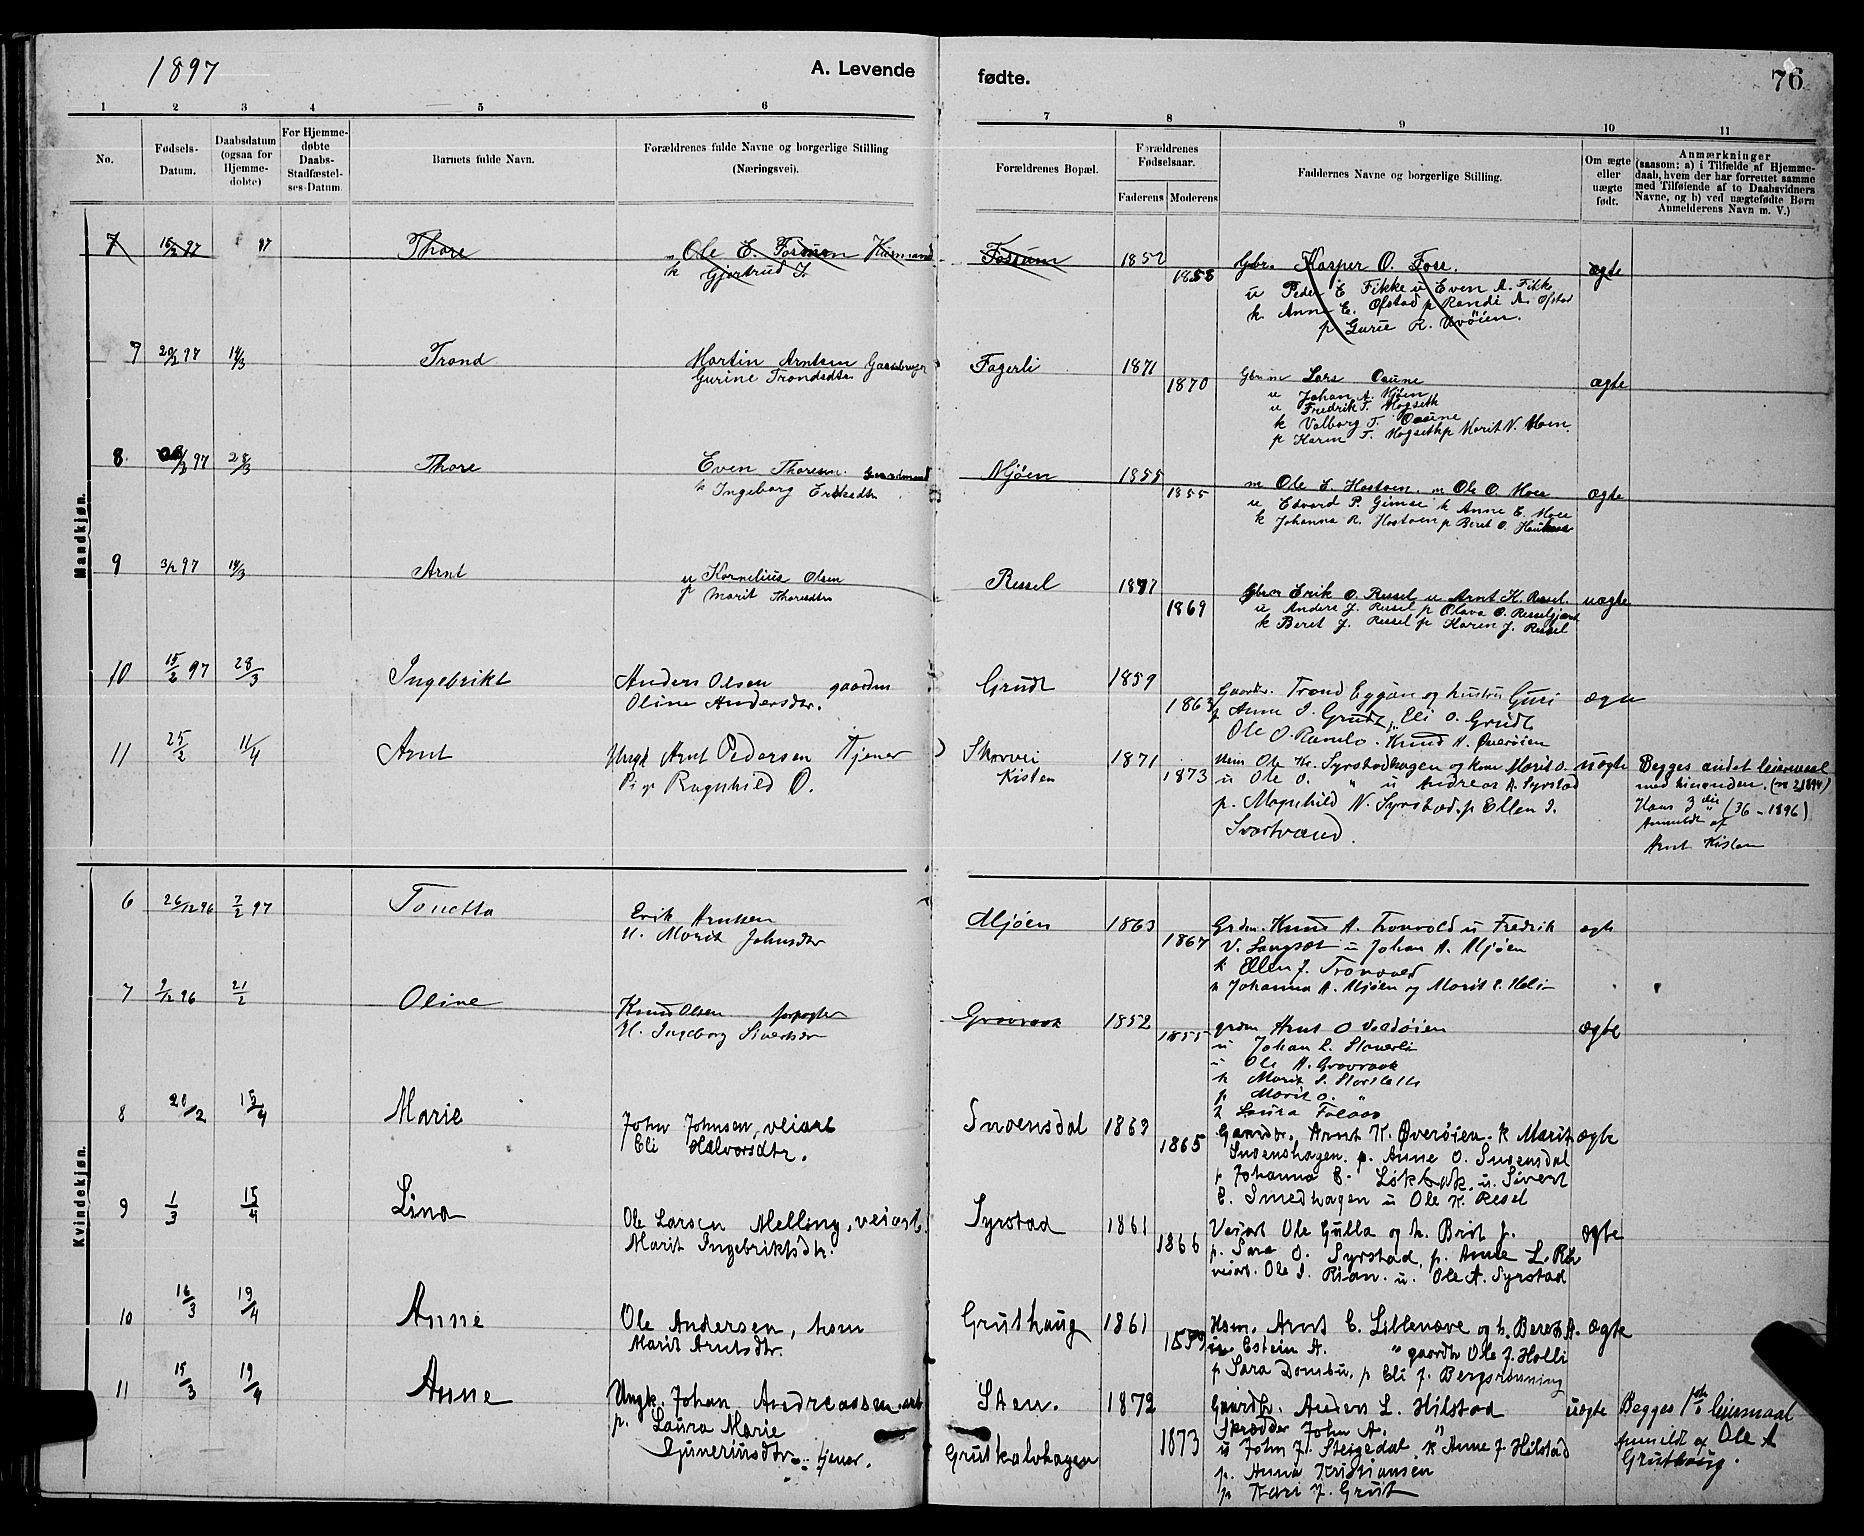 1897
A. Levende fødte.
76
1 2 3 4 5 6 7 8 9 10 11
No.
Fødsels-
Datum.
Daabsdatum
(ogsaa for
Hjemme-
døbte)
For Hjemme-
døbte
Daabs-
Stadfæstel-
ses-Datum.
Barnets fulde Navn.
Forældrenes fulde Navne og borgerlige Stilling
(Næringsvei).
Forældrenes Bopæl.
Forældrenes
Fødselsaar.
Faderens Moderens
Faddernes Navne og borgerlige Stilling.
Om ægte
eller
uægte
født.
Anmærkninger
(saasom: a) i Tilfælde af Hjemme-
daab, hvem der har forrettet samme
med Tilføiende af to Daabsvidners
Navne, og b) ved uægtefødte Børn
Anmelderens Navn m. V.)
Mandkjøn.
7 16/2 97 97 Thore Ole E. Fossum Husmand Fossum 1852 Gbr. Kasper O. Fose. ægte
k Gjertrud 1858
u Peder E Fikke u Even A. Fikke
k. Anne E. Ofstad p Randi A. Ofstad
p Gurie R.
7 20/2 97 14/3 Trond Martin Arntsen Fagerli 1871 ægte
Gurine Trondsdtr 1870 Lars Oaune
u Johan A. Mjøen
u Fredrik T. Hogseth
k Valborg T. Oaune
p Karen T. Hogseth p Marit V. Moen.
8 97 28/3 Thore Even Thoresen Gaardmand Mjøen 1855 m Ole E. Hostoen. m Ole O. Moee ægte
k Ingeborg 1855
u Edvard P. Gimse k Anne E. Moee
k Johanna R. Hostoen p Beret O.
9 3/2 97 14/3 Arnt u Kornelius Olsen Ressel Erik O. Ressel u Arnt K. Ressel. uægte
p Marit Thoresdtr 1869
u Anders J. Ressel p Olava O.
k Beret J. Ressel p Karen J. Ressel
10 15/2 97 28/3 Ingebrikt Anders Olsen gaardm Grudt 1859 Trond Eggan og hustru Guri ægte
Oline Andersdtr. 1863
p Anne I. Grudt, Eli O. Grudt
Ole O. Ramlo. Knud A. Øverøien
11 25/2 11/4 Arnt Ungk Arnt Pedersen Tjener 1871 uægte
Pige Ragnhild O. Kisten 1873
Ole Syrstadhagen og kone Marit O.
u Ole O. " u Andreas A. Syrstad
p. Magnhild N. Syrstad. p Ellen I.
Svartvand.
Begges andet leiermaal
med hinanden.
Hans 3die (36 - 1896)
Anmeldt af
Arnt Kisten
Kvindekjøn.
6 26/12 96 7/2 97 Tonetta Erik Arntsen Mjøen 1863 Grdm. Knud A. Tronvold u Fredrik
H. Marit Johnsdtr 1867
V. Langset u Johan A. Mjøen
k Ellen J.
Johanna A. Mjøen og Marit
7 9/12 96 21/2 Oline Knud Olsen forpagter Grovraak 1852 grdm Arnt O ægte
H. Ingeborg Sivertsdtr 1855
u Johan L.
u Ole A. Grovraak
k Marit S.
p Marit O. "
Laura
8 20/2 15/4 Marie John Johnsen, veiarb Snoensdal 1863 Gaardbr. Arnt K. Øverøien. k Marit ægte
Eli Halvorsdtr. 1865
Snoenshagen. p. Anne O. Snoensdal
p Johanna E. Løkbak. u. Sivert
E. Smedhagen u Ole K. Resel
9 1/3 15/4 Lina Ole Larsen Melling, veiarb. Syrstad 1861 Veiarb Ole Gulla og h. Brit J. ægte
Marit Ingebriktsdtr. 1866
p. Sara O. Syrstad, p. Anne L.
veiarb. Ole I. Rian. u. Ole A. Syrstad
10 16/3 19/4 Anne Ole Andersen, hsm Gruthaug 1861 Hsm. Arnt E. Lillenæve og h. Beret A. ægte
Marit Arntsdtr. 1859
Estein A. " gaardbr Ole J. Holli
p Sara Dombu, p Eli J. Bergsrønning
11 15/3 19/4 Anne Ungk. Johan Andreassen. arb Sten. 1872 Gaardbr. Anders L. Hilstad uægte
p. Laura Marie
Guneriusdtr. tjener. Grutkalvhagen 1873
Skrædder John A. "
u John J. Steigedal k Anne J Hilstad
p. Anna Kristiansen
p Kari J. Grut
Begges 1ste leiermaal
Anmeldt af Ole A
Gruthaug.